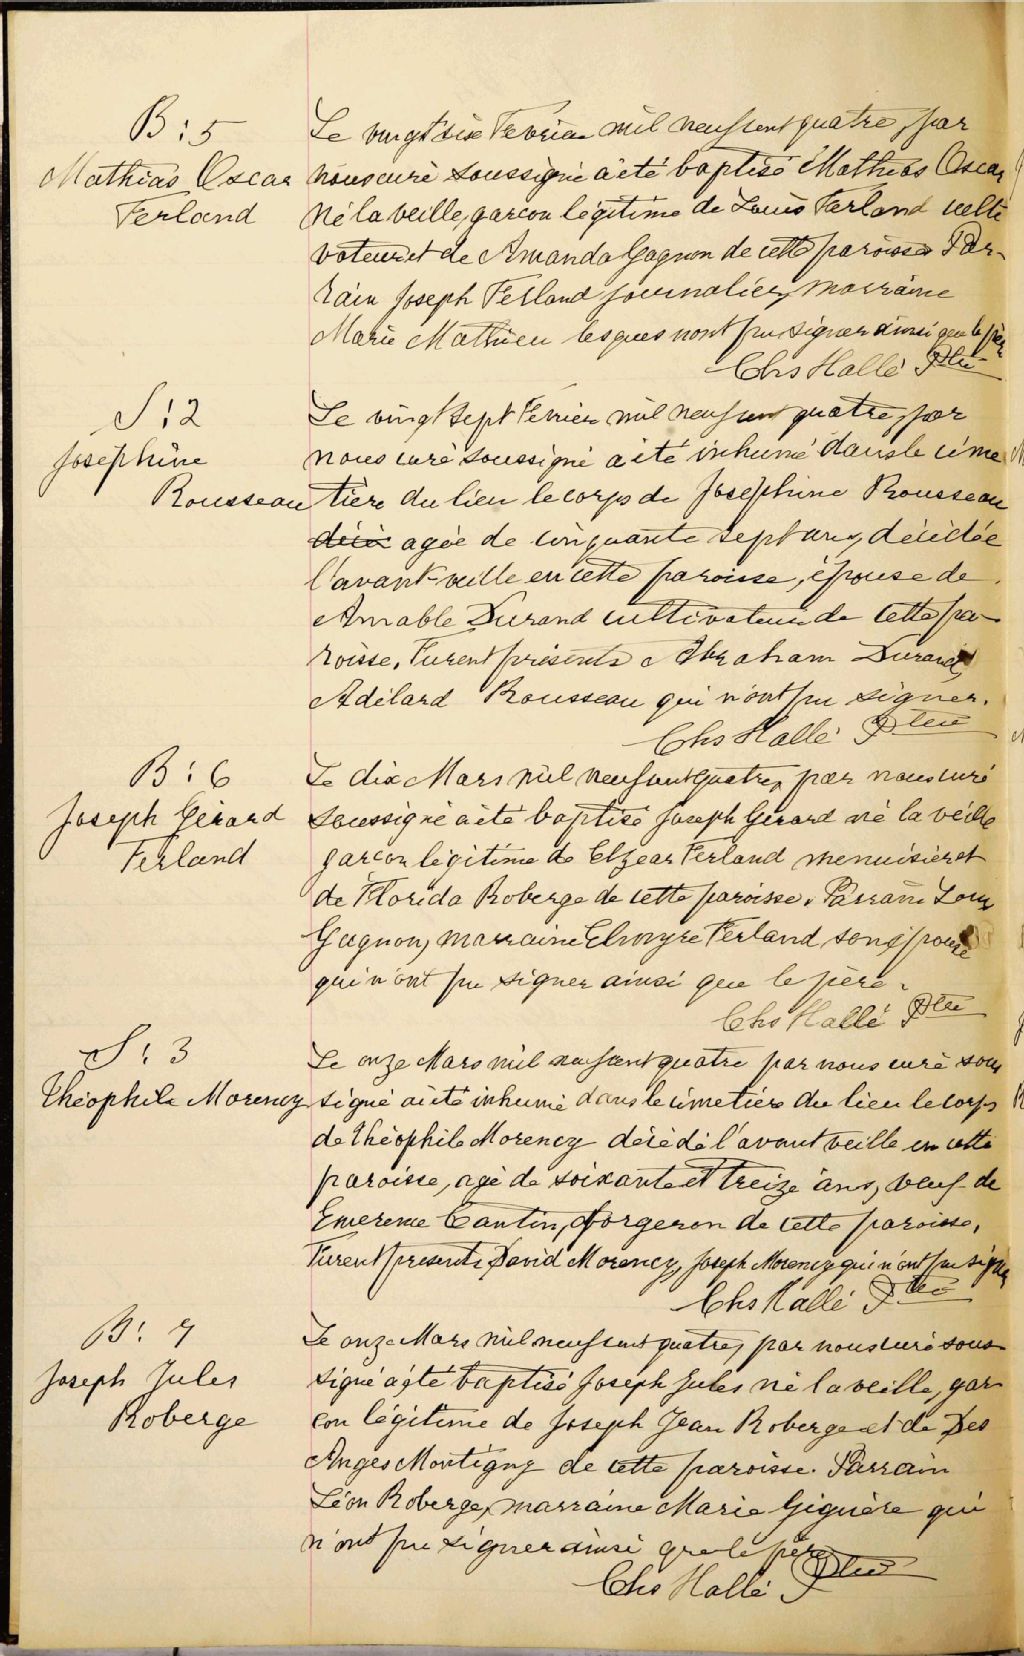 B : 5
Mathias Oscar
Ferland
Le vingt six Fevrier mil neuf cent quatre, par
nous curé soussigné a été baptisé Mathias Oscar
né la veille, garcon légitime de Louis Ferland culti
vateur et de Amanda Gagnon de cette paroisse Par-
rain Joseph Ferland journalier, marraine
Marie Mathieu lesquels n'ont pu signer ainsi que le père
Chs Hallé Ptre
S : 2
Josephine
Rousseau
Le vingt sept Fevrier mil neuf cent quatre, par
nous curé soussigné a été inhumé dans le cime
tière du lieu le corps de Josephine Rousseau
décé agée de cinquante sept ans, décédée
l'avant-veille en cette paroisse, épouse de
Amable Durand cultivateur de cette pa-
roisse. Furent présents Abraham Durand,
Adélard Rousseau qui n'ont pu signer.
Chs Hallé Ptre
B : 6
Joseph Gérard
Ferland
Le dix Mars mil neuf cent quatre, par nous curé
soussigné a été baptisé Joseph Gérard né la veille
garcon légitime de Elzear Ferland menuisier et
de Florida Roberge de cette paroisse. Parrain Louis
Gagnon, marraine Elmyre Ferland son épouse
qui n'ont pu signer ainsi que le père.
Chs Hallé Ptre
S : 3
Théophile Morency
Le onze Mars mil neuf cent quatre par nous curé sous
signé a été inhumé dans le cimetière du lieu le corps
de Théophile Morency décédé l'avant veille en cette
paroisse, agé de soixante et treize ans, veuf de
Emerence Cantin, forgeron de cette paroisse.
Furent presents David Morency, Joseph Morency qui n'ont pu signer
Chs Hallé Ptre
B : 7
Joseph Jules
Roberge
Le onze Mars mil neuf cent quatre, par nous curé sous-
signé a été baptisé Joseph Jules né la veille, gar-
con légitime de Joseph Jean Roberge et de Des
Anges Montigny de cette paroisse. Parrain
Léon Roberge, marraine Marie Giguère qui
n'ont pu signer ainsi que le père
Chs Hallé Ptre